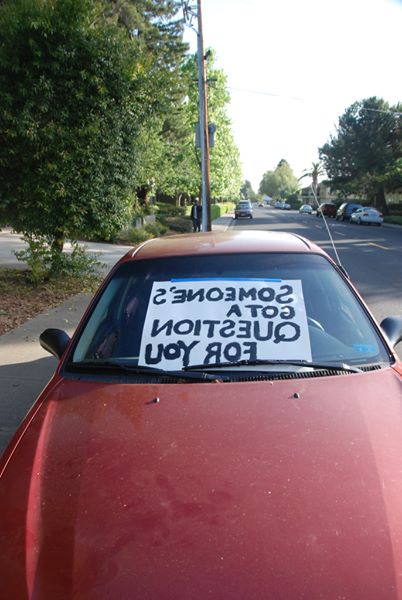 SOMEONE'S
GOT A
QUESTION
FOR YOU